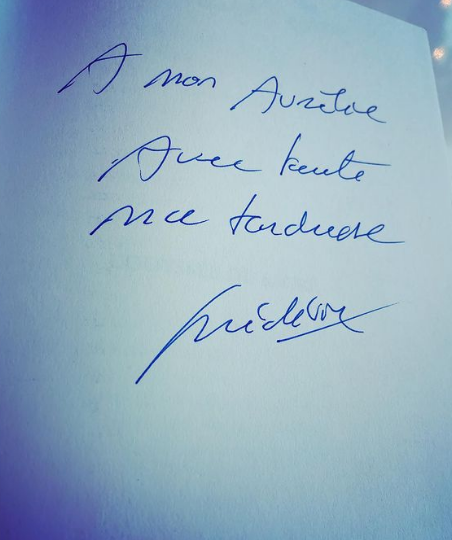 A mon Aurélie
Avec toute
ma tendresse